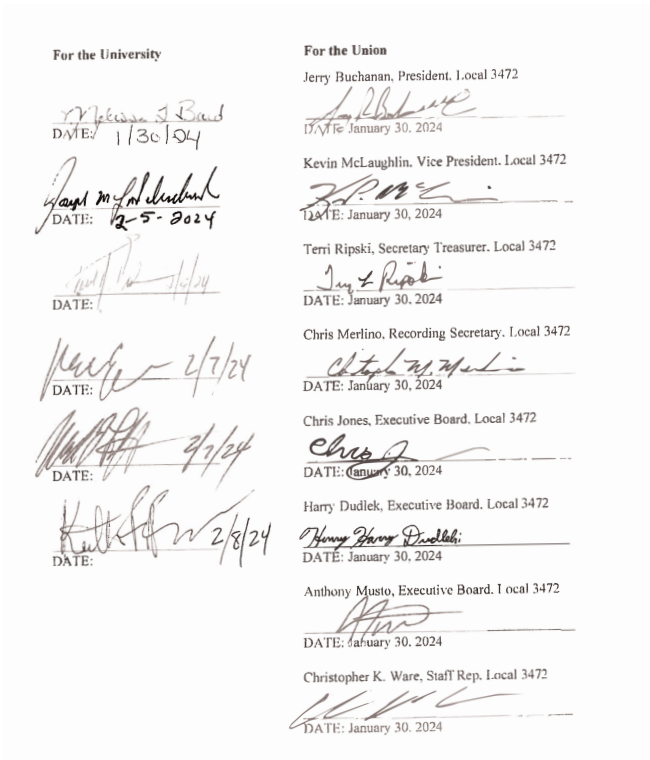 For the University
DATE: 1/30/04
DATE: 2-5-2024
DATE:
2/7/24
DATE:
2/7/24
DATE:
2/8/24
DATE:
For the Union
Jerry Buchanan, President. Local 3472
DATE January 30, 2024
Kevin McLaughlin. Vice President. Local 3472
DATE: January 30, 2024
Terri Ripski, Secretary Treasurer. Local 3472
DATE: January 30, 2024
Chris Merlino, Recording Secretary. Local 3472
DATE: January 30, 2024
Chris Jones, Executive Board. Local 3472
Chris J
DATE: January 30, 2024
Harry Dudlek, Executive Board. Local 3472
Henry Harry Dudlek
DATE: January 30, 2024
Anthony Musto, Executive Board. Local 3472
DATE: January 30. 2024
Christopher K. Ware, Staff Rep. Local 3472
DATE: January 30. 2024